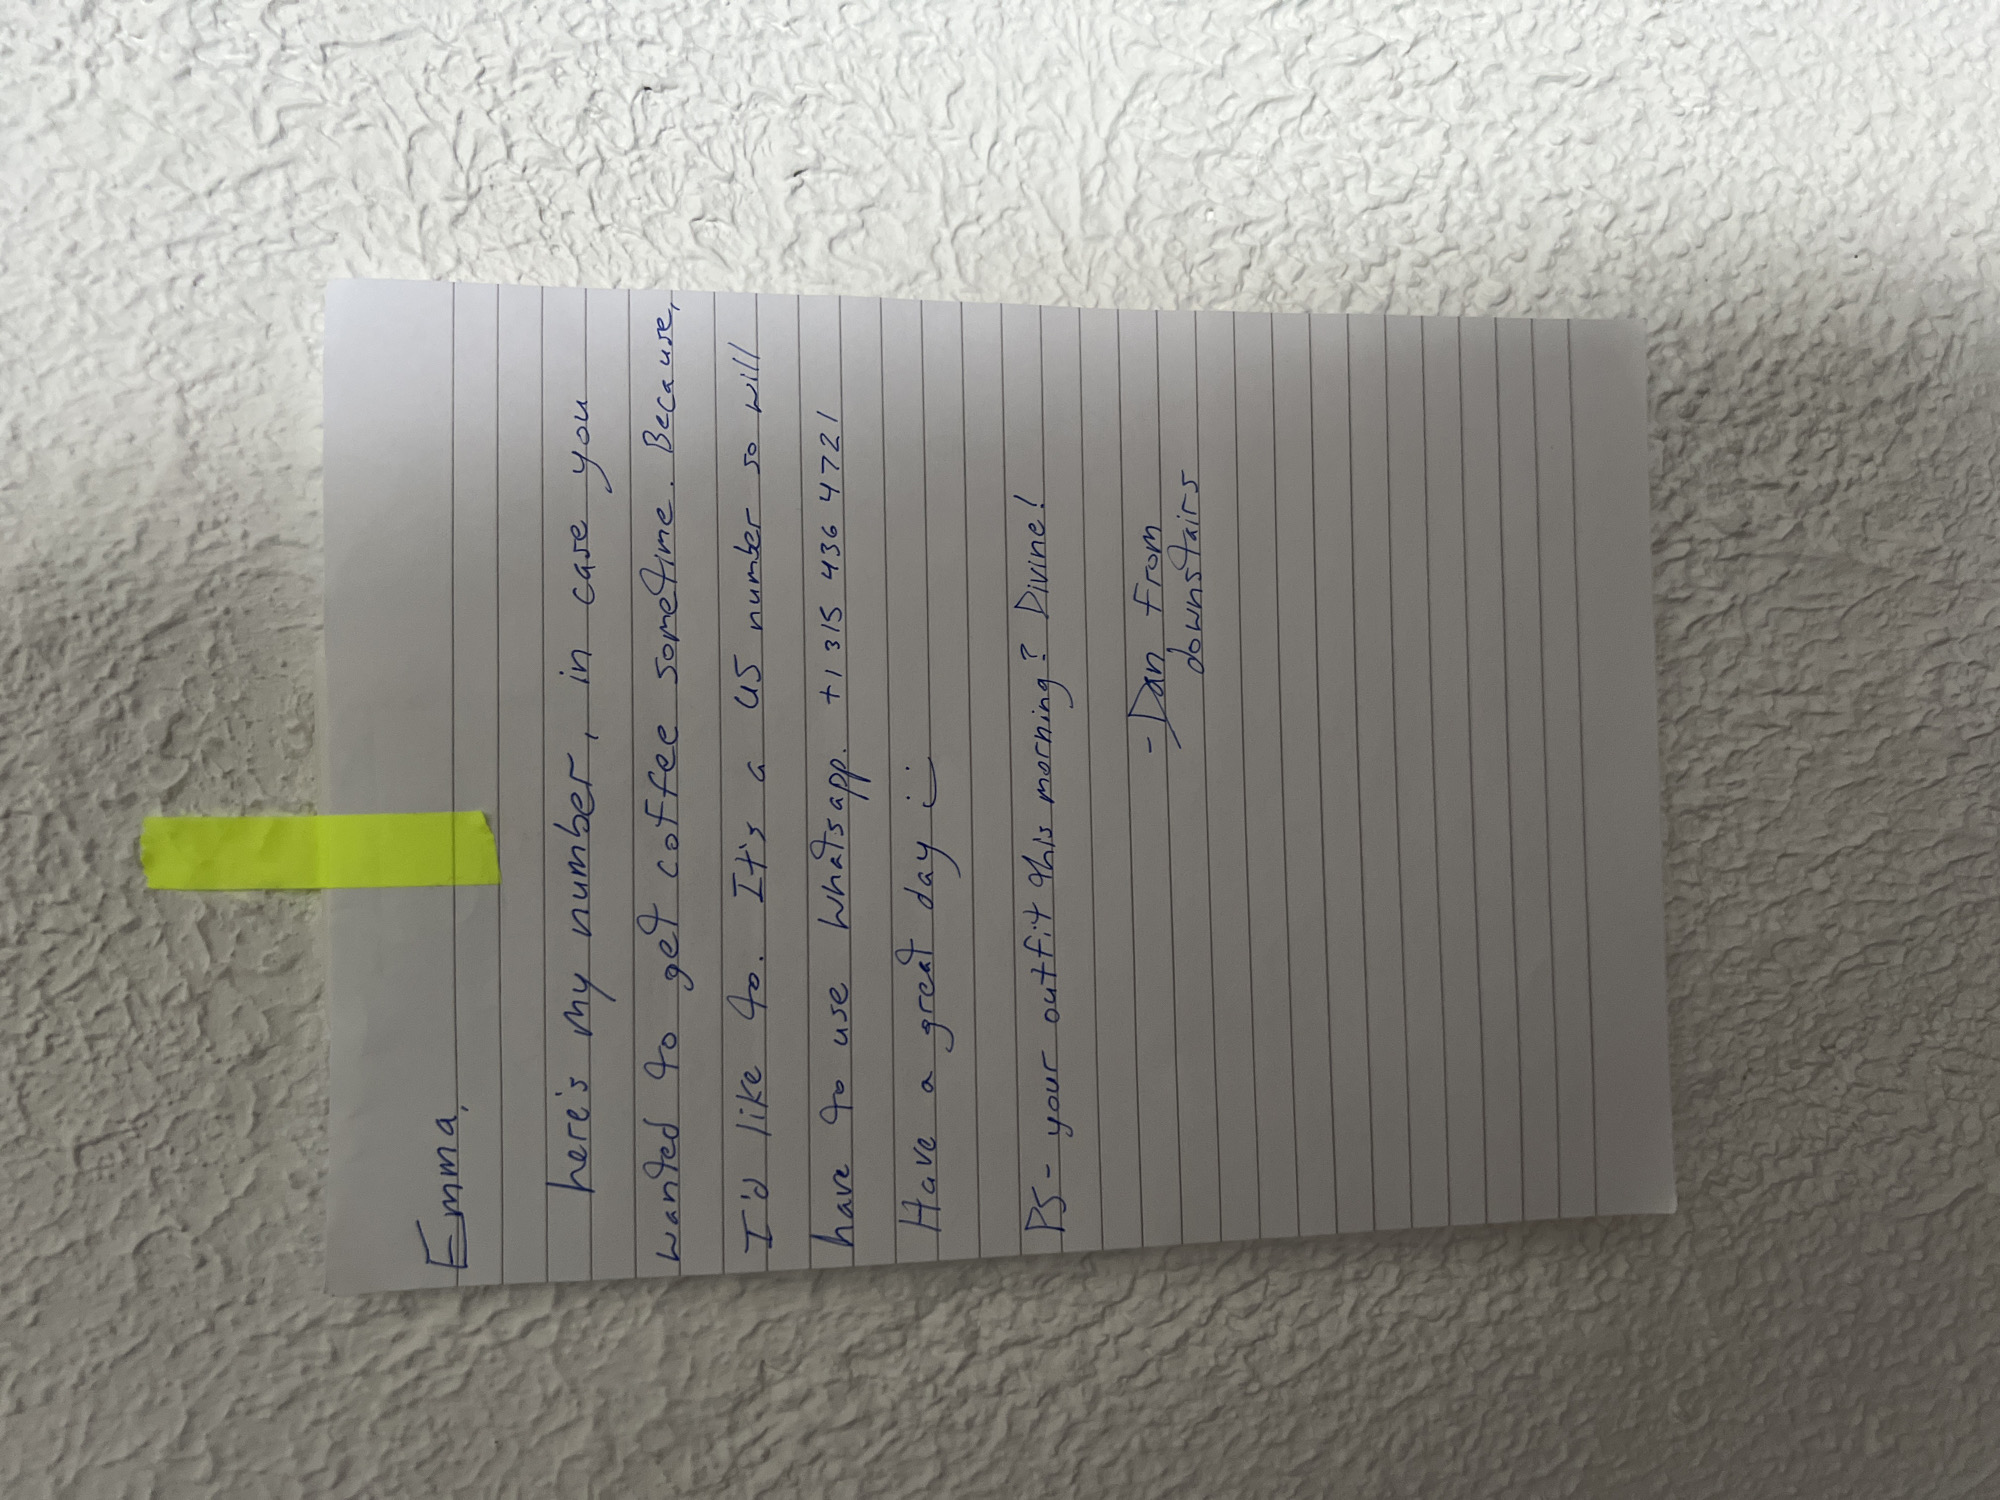 Emma,
here's my number, in case you
wanted to get coffee sometime. Because,
I'd like to. It's a US number so will
have to use Whatsapp. +1 315 436 4721
Have a great day :)
PS - your outfit this morning? Divine!
- Dan from
downstairs